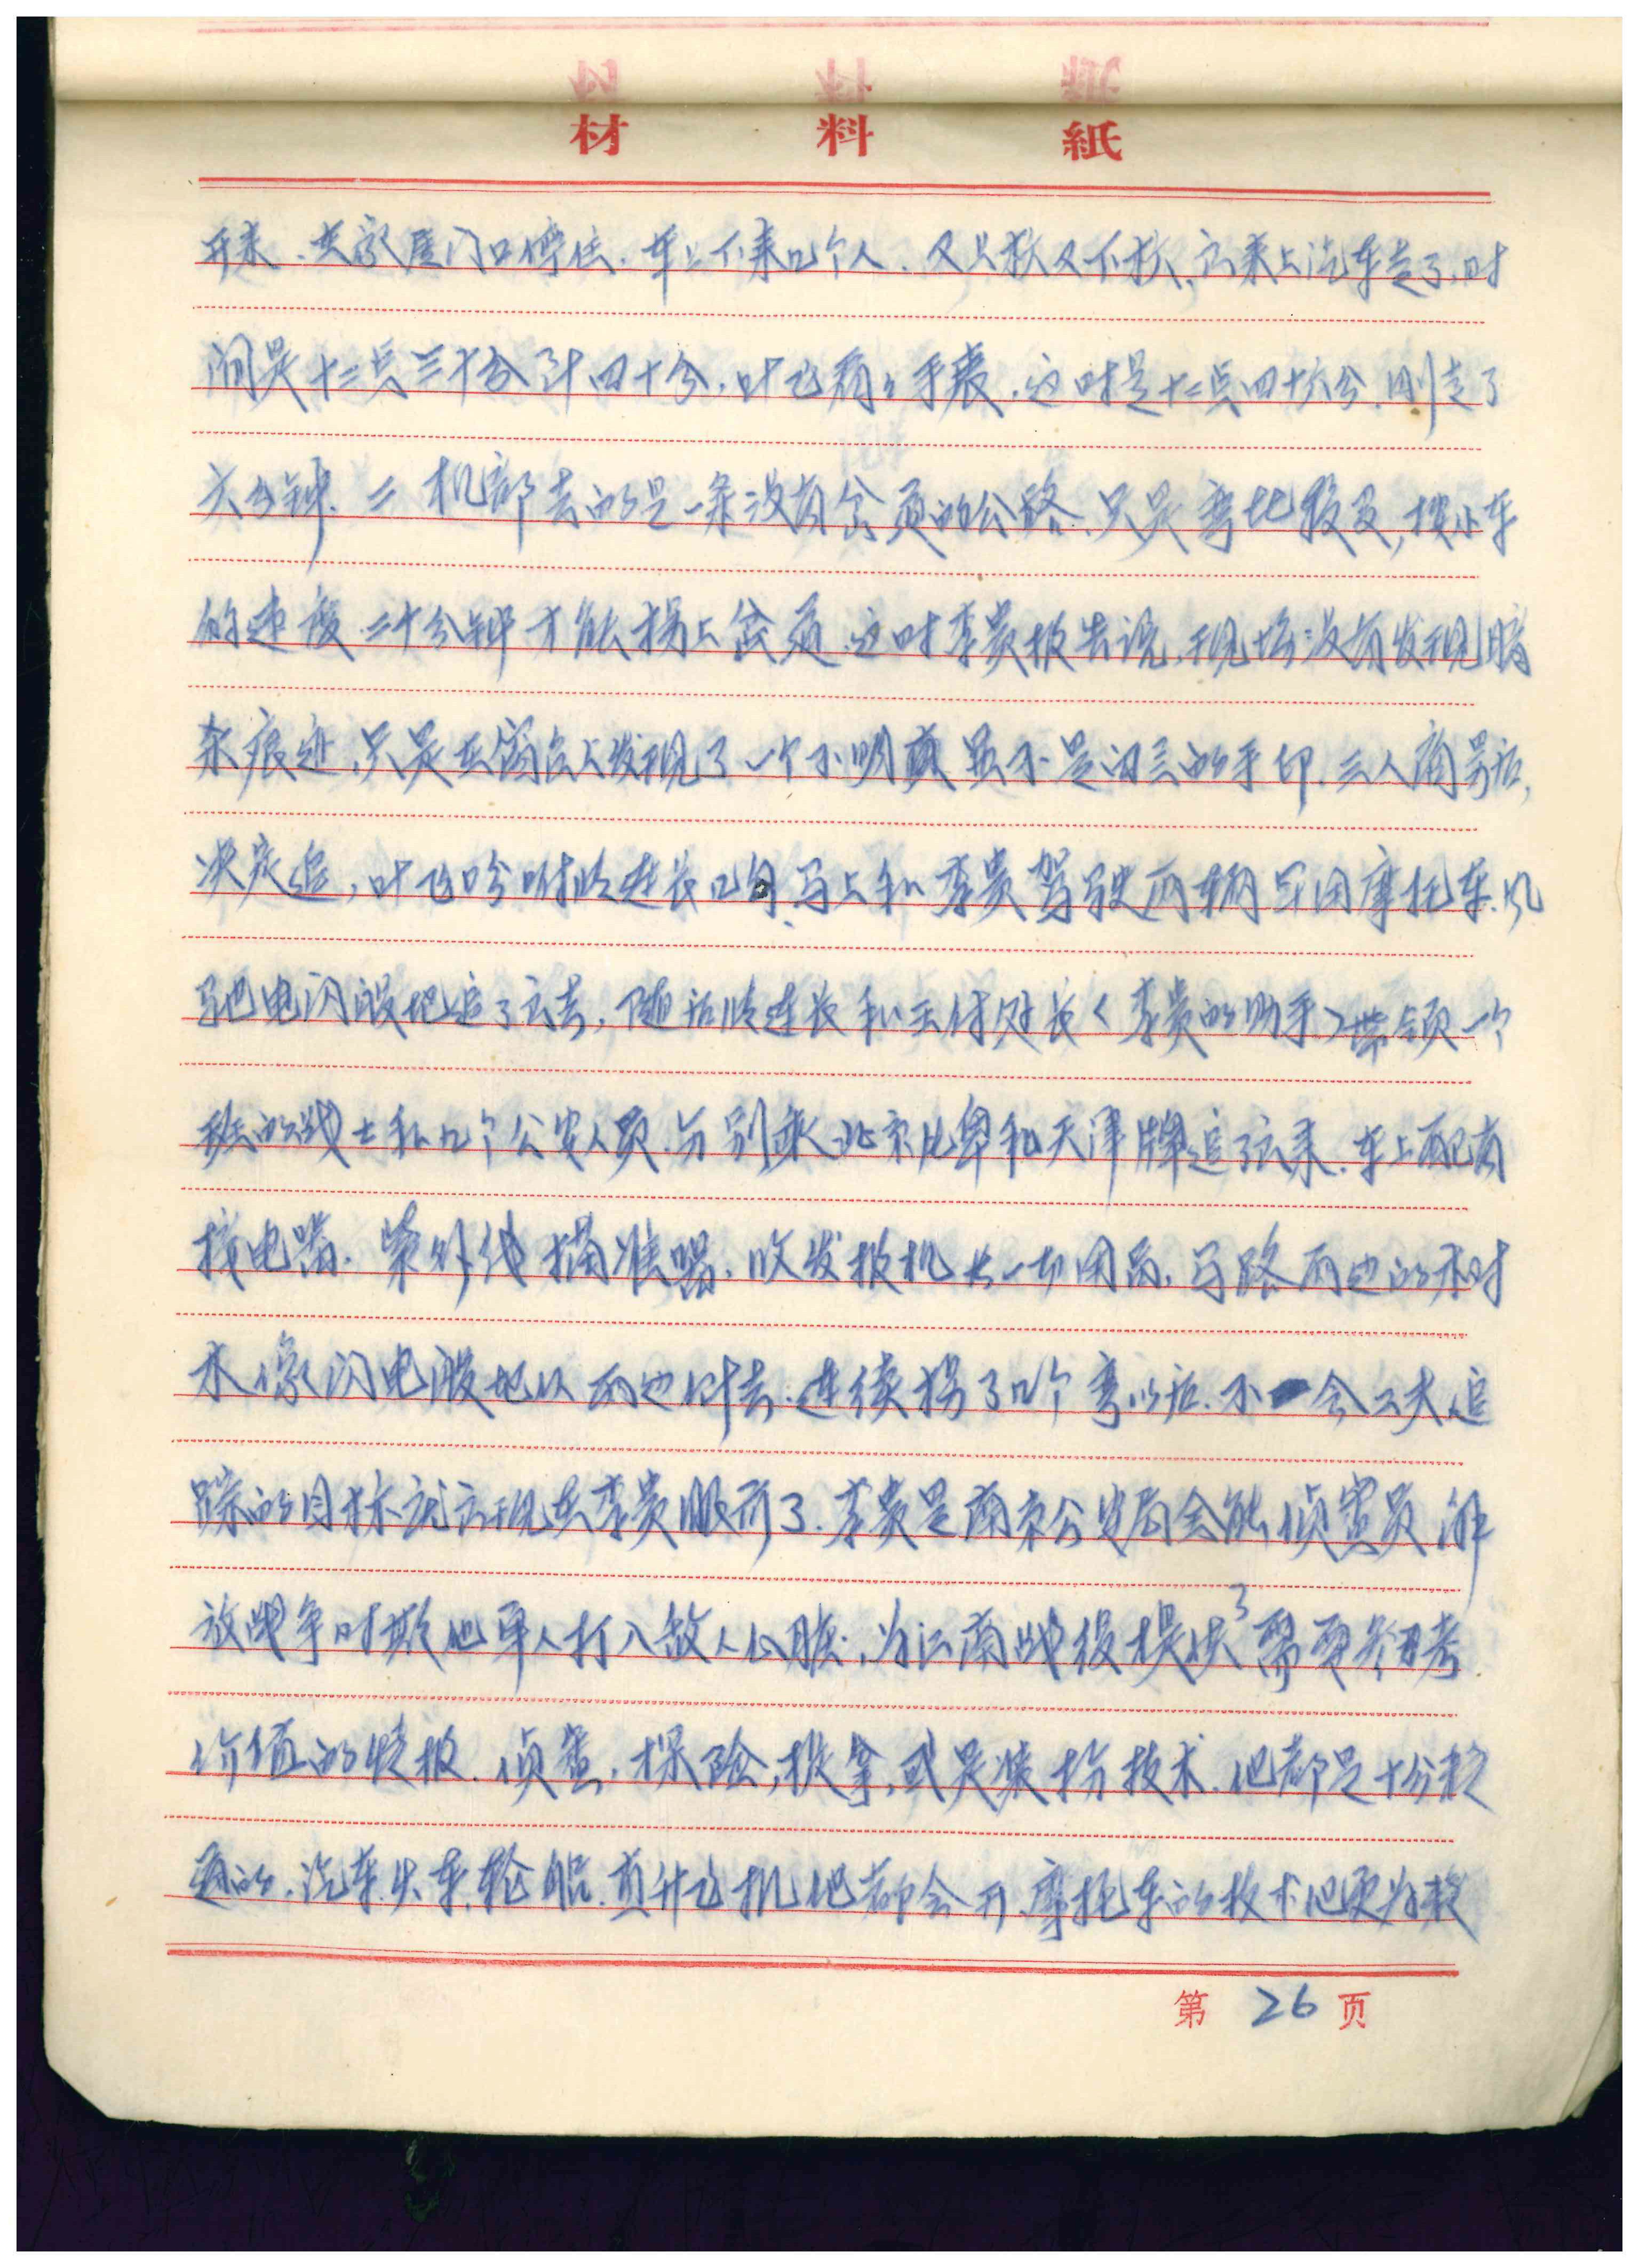 材料紙
开来.在家屋门口停住.车上下来几个人.又上来又下来,出来上汽车走了.时
间是十二点三十分到四十分.叶飞看看手表.这时是十二点四十六分.刚走了
六分钟.二机部去的是一条没有岔道的公路.只是弯比较多,按小车
的速度.二十分钟才能拐上岔道.这时李贵报告说.现场没有发现暗
杀痕迹,只是在窗台上发现了一个不明显 不是闵兰的手印.三人商量后,
决定追,叶飞吩咐陈连长几句马上和李贵驾驶两辆军用摩托车.风
驰电闪般地追了出去,随后陈连长和王付处长<李贵的助手>带领一个
班的战士和几个公安人员.分别乘北京牌和天津牌追了出来.车上配有
接电器.紫外线描准器.收发报机 一切用品.马路两边的树
木像闪电般地从两边 去.连续拐了几个弯以后.不一会工夫追
踪的目标就出现在李贵眼前了.李贵是南京公安局全能侦察员 解
放战争时期他单人打入敌人心脏,为江南战役提供了 参考
价值的情报.侦察,探险,捉拿,或是装扮技术.他都是十分精
通的.汽车.火车,轮船.直升飞机他都会开.摩托车的技术他更为精
第 26 页